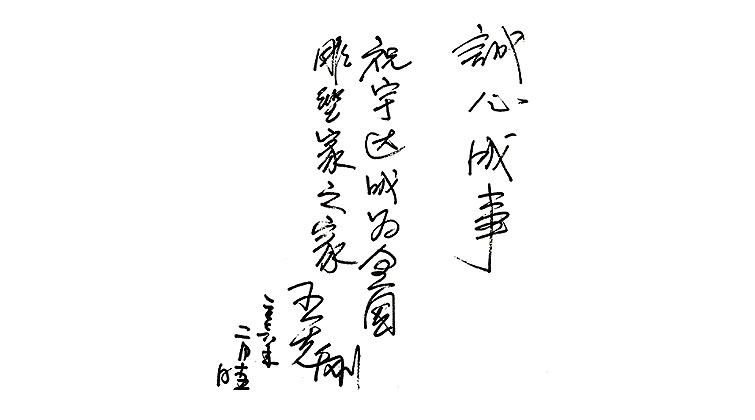 誠心成事
祝宇达成为全国
雕塑家之家
王克刚
二〇〇六年
二月